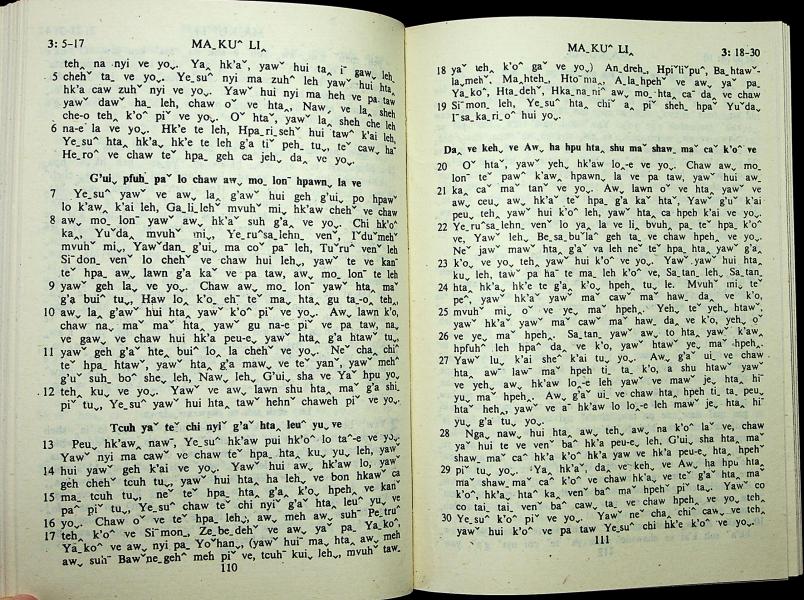 3: 5-17 MA_ KUˆ LI‸
teh‸ na nyi ve yo⌄. Ya‸ hk'aˇ, yawˇ hui ta‸ iˉ gaw⌄ leh_
5 chehˇ ta_ ve yo⌄. Ye_suˆ nyi ma zuhˆ leh yawˇ hui hta‸
hk'a caw zuhˇ nyi ve yo⌄. Yawˇ hui nyi ma heh ve pa_taw
yawˇ dawˇ ha_leh, chaw oˇ ve hta‸, Nawˇ, ve la_ sheh
che-o teh‸ k'oˆ pi ve yo⌄. Oˇ htaˇ, yawˇ la_ sheh che leh
6 na-eˉ la ve yo⌄. Hk'e te leh, Hpa_ri_sehˇ hui tawˆ k'ai leh,
Ye_suˆ hta‸ hk'a‸ hk'e te leh g'a tiˇ peh_ tu_, teˇ caw_ haˉ
He_roˆ ve chaw teˇ hpa_ geh ca jeh_ da_ ve yo⌄.
G'ui_ pfuh_ paˇ lo chaw aw_ mo_ lonˉ hpawn_ la ve
7 Ye_suˆ yawˇ ve aw_ la_ g'awˇ hui geh g'ui_ po hpawˇ
lo k'aw_ k'ai leh, Ga_li_lehˇ mvuhˇ mi_, hk'aw chehˇ ve chaw
8 aw_ mo_ lonˉ yawˇ aw_ hk'aˇ suh g'a ve yo⌄. Chi hk'oˆ
ka_ Yuˇda_ mvuhˇ mi_, Ye_ruˆsa_lehn_ venˇ, Iˇduˇmehˇ
mvuhˇ mi_, Yawˇdan_ g'ui_ ma coˇ paˉ leh, Tuˇruˆ venˇ leh
Siˉdon_ venˇ lo chehˇ ve chaw hui leh_ yawˇ te ve kanˇ
teˇ hpa_ aw_ lawn g'a kaˇ ve pa_taw, aw_ mo_ lonˉ te leh
9 yawˇ geh la_ ve yo⌄. Chaw aw_ mo_ lonˉ yawˇ hta_ maˇ
g'a buiˆ tu_, Haw lo_ k'o_ ehˉ teˇ ma_ hta_ gu ta_-o teh‸,
10 aw_ la_ g'awˇ hui hta_ yawˇ k'oˆ pi ve yo⌄. Aw_ lawn k'o,
chaw na_ maˇ ma_ hta‸ yawˇ gu na-e pi ve pa_taw, na_
ve gaw_ ve chaw hui hk'a peu-e_ yawˇ hta‸ g'a htawˇ tu_,
11 yawˇ geh g'aˇ hte_ buiˆ lo_ la chehˇ ve yo⌄. Neˇ cha_ chiˆ
teˇ hpa_ htawˇ, yawˇ hta‸ g'a maw_ ve teˇ yanˇ, yawˇ mehˇ
g'uˇ suhˉ boˆ she_ leh, Nawˇ leh_ G'ui_ sha ve Yaˇ hpu yo_
12 teh‸ ku_ ve yo⌄. Yawˇ ve aw_ lawn shu hta_ maˇ g'a shi_
pi tu_, Ye_suˆ yawˇ hui hta‸ tawˇ hehnˇ chawehˇ pi ve yo⌄.
Tcuh yaˇ teˇ chi nyiˇ g'aˇ hta‸ leuˆ yu_ ve
13 Peu_ hk'aw_ nawˉ, Ye_suˆ hk'aw pui hk'oˆ lo taˆ-e ve yo⌄.
Yawˇ nyi ma caw_ ve chaw teˇ hpa_ hta‸ ku_ yu_ leh, yawˇ
14 hui yawˇ geh k'ai ve yo⌄. Yawˇ hui aw_ hk'aw lo, yawˇ
geh chehˇ tcuh tu_, yawˇ hui hta‸ ha leh_ ve bon hkawˇ ca
15 ma_ tcuh tu_, neˇ teˇ hpa_ hta‸ g'a_ k'o_ hpeh_ ve kanˇ
paˆ pi tu_, Ye_suˆ chaw teˇ chi nyiˇ g'aˇ hta‸ leuˆ yu_ ve
16 yo⌄. Chaw oˇ ve teˇ hpa_ leh_, aw_ meh aw_ suhˉ Pe_truˆ
17 teh‸ k'oˆ ve Siˇmon_, Ze_be_dehˇ ve aw_ yaˇ pa_ Ya_koˆ,
Ya_koˆ ve aw_ nyi pa_ Yoˇhan_, (yawˇ huiˉ ma_ hta‸ aw_ meh
aw_ suhˉ Bawˇne_gehˆ meh pi ve, tcuhˉ kui_ leh_, mvuhˇ taw_
110
MA_ KUˆ LI‸ 3: 18-30
18 yaˇ teh‸ k'oˆ gaˇ ve yo⌄) An_dreh_, Hpiˇliˇpuˆ, Ba_htawˇ-
la_mehˇ, Ma_hteh_, Htoˉma_, A_la_hpeh ve aw_ yaˇ pa_
Ya_koˆ, Hta_dehˇ, Hka_na_niˆ aw_ mo_ hta_ caˇ da_ ve chaw
19 Siˉmon_ leh, Ye_suˆ hta‸ chiˇ a_ piˇ sheh_ hpaˇ Yuˇda_
Iˉsa_ka_ri_oˆ hui yo⌄.
Da_ ve keh_ ve Aw_ ha hpu hta‸ shu maˇ shaw_ maˇ caˇ k'oˆ ve
20 Oˇ htaˇ, yawˇ yeh_ hk'aw lo_-e ve yo⌄. Chaw aw_ mo_
lonˉ teˇ pawˆ k'aw_ hpawn_ la ve pa_taw, yawˇ hui aw_
21 ka_ caˇ maˇ tanˇ ve yo⌄. Aw_ lawn oˇ ve hta‸ yawˇ ve
aw_ ceu_ aw_ hk'aˇ teˇ hpa_ g'a kaˇ htaˇ, Yawˇ g'uˇ k'ai
peu_ teh‸ yawˇ hui k'oˆ leh, yawˇ hta‸ ca hpeh k'ai ve yo⌄.
22 Ye_ruˆsa_lehn_ venˇ lo ya_ la ve li_ bvuh_ pa_ teˇ hpa_ k'oˆ
ve, Yawˇ leh_ Be_sa_buˇlaˆ geh ta_ ve chaw hpeh_ ve yo⌄.
Neˇ jawˇ maw_ hta‸ g'aˇ va leh neˇ teˇ hpa_ hta‸ yawˇ g'a_
23 k'o_ ve yo⌄ teh‸ yawˇ hui k'oˆ ve yo⌄. Yawˇ yawˇ hui hta‸
ku_ leh, taw_ pa haˉ te ma_ leh k'oˆ ve, Sa_tan_ leh_ Sa_tan_
24 hta‸ hk'a_ hk'e te g'a_ k'o_ hpeh_ tu_ le. Mvuhˇ mi_ teˇ
peˆ, yawˇ hk'aˇ yawˇ ma_ cawˇ maˇ haw_ da_ ve k'o,
25 mvuhˇ mi_ oˇ ve ye_ maˇ hpeh_. Yeh_ teˇ yeh_ htawˇ,
yawˇ hk'aˇ yawˇ ma_ cawˇ maˇ haw_ da_ ve k'o, yeh_ oˇ
26 ve ye_ maˇ hpeh_. Sa_tan_ yawˇ aw_ to hta‸ yawˇ k'aw_
hpfuhˇ leh hpaˉ da_ ve k'o, yawˇ htawˇ ye_ maˇ hpeh_.
27 Yawˇ lu_ k'ai sheˆ k'ai tu_ yo⌄. Aw_ g'aˇ ui_ ve chaw
hta‸ awˉ lawˇ maˇ hpeh ti_ ta_ k'o, a shu htawˇ yawˇ
ve yeh_ aw_ hk'aw lo_-e leh yawˇ ve mawˇ je_ hta‸ hiˉ
yu_ maˇ hpeh_. Aw_ g'aˇ ui_ ve chaw hta‸ hpeh ti_ ta_ peu_
htaˇ heh_ yawˇ ve aˉ hk'aw lo lo_-e leh mawˇ je_ hta‸ hiˉ
yu_ g'a tu_ yo⌄.
28 Nga_ nawˇ hui hta‸ aw_ teh‸ aw_ na k'oˆ laˇ ve, chaw
yaˇ hui te ve venˇ baˆ hk'a peu-e leh, G'ui_ sha hta‸ maˇ
shaw_ maˇ caˇ hk'a k'oˆ hk'a yawˇ ve hk'a peu-e hta‸ hpehˇ
29 pi tu_ yo⌄. Ya_ hk'aˇ, da_ ve keh_ ve Aw_ ha hpu hta‸
maˇ shaw_ maˇ caˇ k'oˆ ve chaw hk'a_ ve teˇ g'aˇ leh_
k'oˆ, hk'a_ htaˇ ka_ venˇ baˆ maˇ hpehˇ pi ta_. Yawˇ co
co tai_ tai_ venˇ baˆ caw_ ta_ ve chaw hpeh_ ve yo⌄ teh‸
30 Ye_suˆ k'oˆ pi ve yo⌄. Yawˇ neˇ cha_ chiˆ caw_ ve teh‸
yawˇ hui k'oˆ ve pa_taw Ye_suˆ chi hk'e k'oˆ ve yo⌄.
111